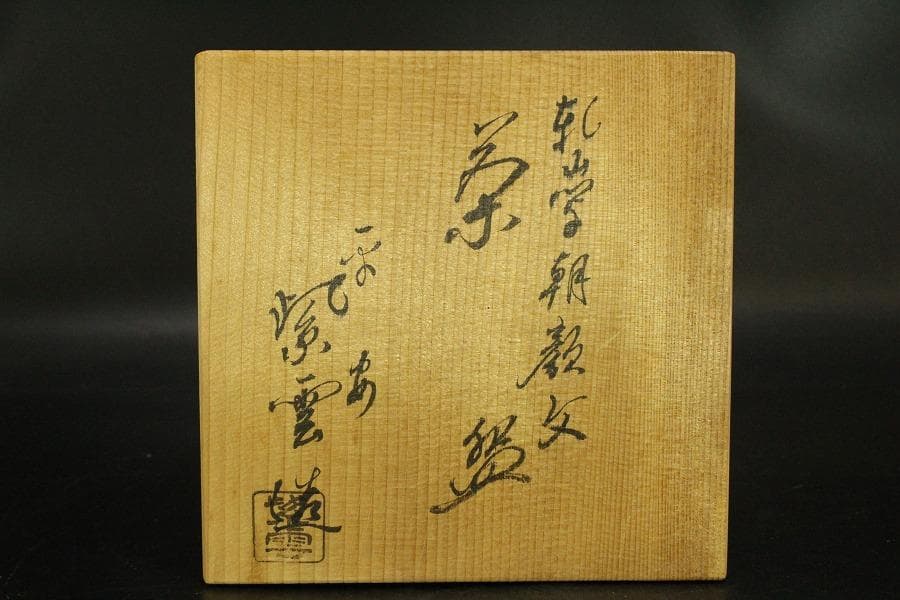 乾山写朝顔文
茶盌
平安
紫雲造